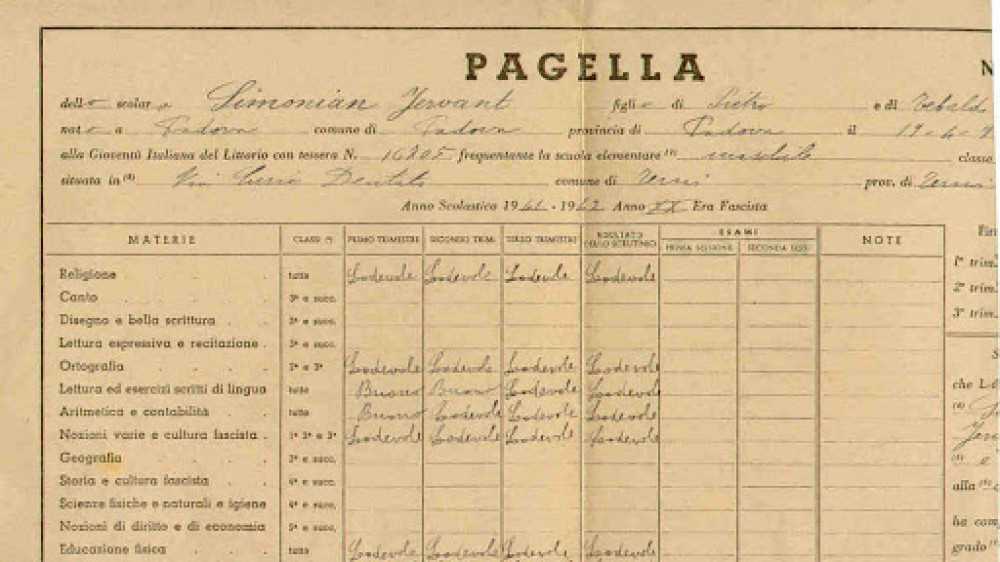 PAGELLA N
dello scolaro Simonian Jervant figlio di Pietro e di Tebald
nato a Padova comune di Padova provincia di Padova il 19-6-
alla Gioventù Italiana del Littorio con tessera N. 16205 frequentante la scuola elementare maschile classe
situata in Via Curio Dentato comune di Terni prov. di Terni
Anno Scolastico 1941-1942 Anno XX Era Fascista
MATERIE CLASSI PRIMO TRIMESTRE SECONDO TRIM. TERZO TRIMESTRE RISULTATO DELLO SCRUTINIO ESAMI PRIMA SESSIONE SECONDA SESS. NOTE
Religione tutte Lodevole Lodevole Lodevole Lodevole
Canto 3ª e succ.
Disegno e bella scrittura 3ª e succ.
Lettura espressiva e recitazione 3ª e succ.
Ortografia 2ª e 3ª Lodevole Lodevole Lodevole Lodevole
Lettura ed esercizi scritti di lingua tutte Buono Buono Lodevole Lodevole
Aritmetica e contabilità tutte Buono Lodevole Lodevole Lodevole
Nozioni varie e cultura fascista 1ª 2ª e 3ª Lodevole Lodevole Lodevole Lodevole
Geografia 3ª e succ.
Storia e cultura fascista 4ª e succ.
Scienze fisiche e naturali e igiene 4ª e succ.
Nozioni di diritto e di economia 5ª e succ.
Educazione fisica tutte Lodevole Lodevole Lodevole Lodevole
Fir
1º trim.
2º trim.
3º trim.
che
alla
ha com
grado